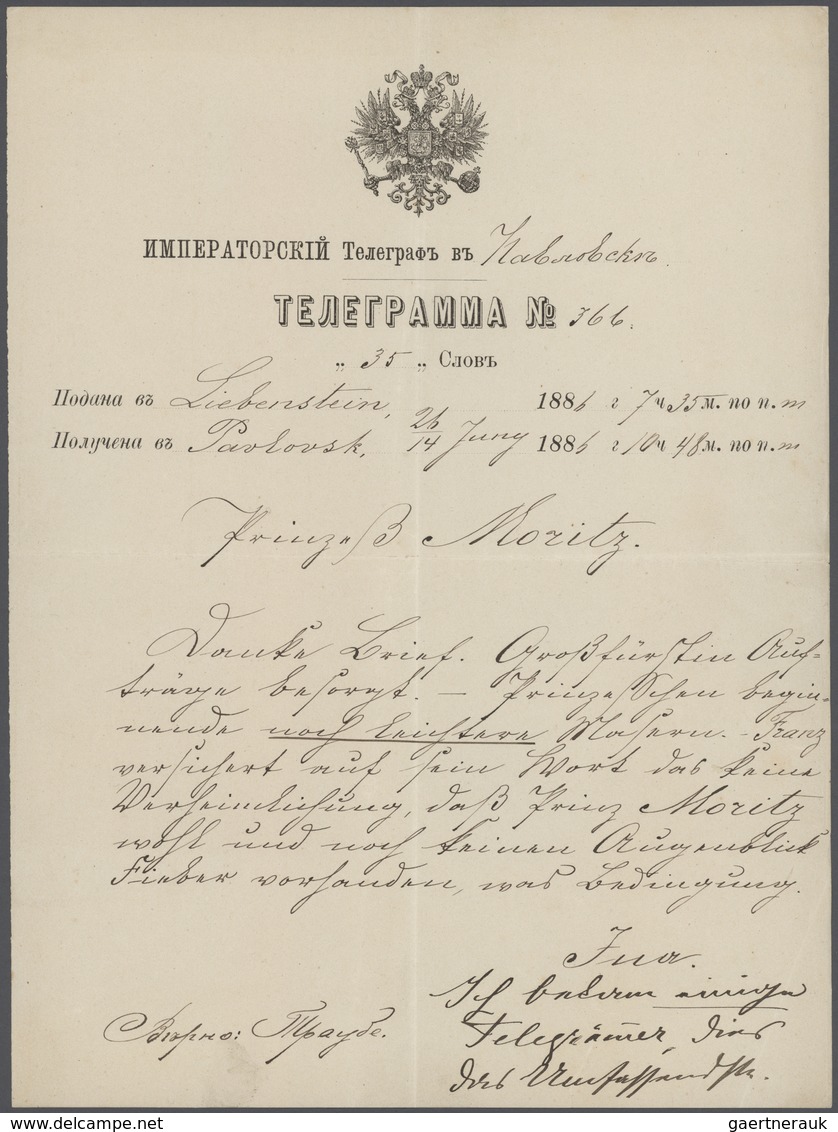 ИМПЕРАТОРСКІЙ Телеграфъ въ Павловскъ
ТЕЛЕГРАММА № 366.
„ 35 „ Словъ
Подана въ Liebenstein, 1886 г 7 ч 35 м. по п. m
Получена въ Pavlovsk, 26/14 Juny 1886 г 10 ч 48 м. по п. m
Prinzeß Moritz.
Danke Brief. Großfürstin Auf-
träge besorgt. — Prinzesschen begin-
nende noch leichtere Masern. - Franz
versichert auf sein Wort das keine
Verheimlichung, daß Prinz Moritz
wohl und noch keinen Augenblick
Fieber vorhanden, was Bedingung.
Ina.
Ich bekam einige
Telegramme, dies
das Umfassendste.
Вѣрно: Траубе.
gaertnerauk